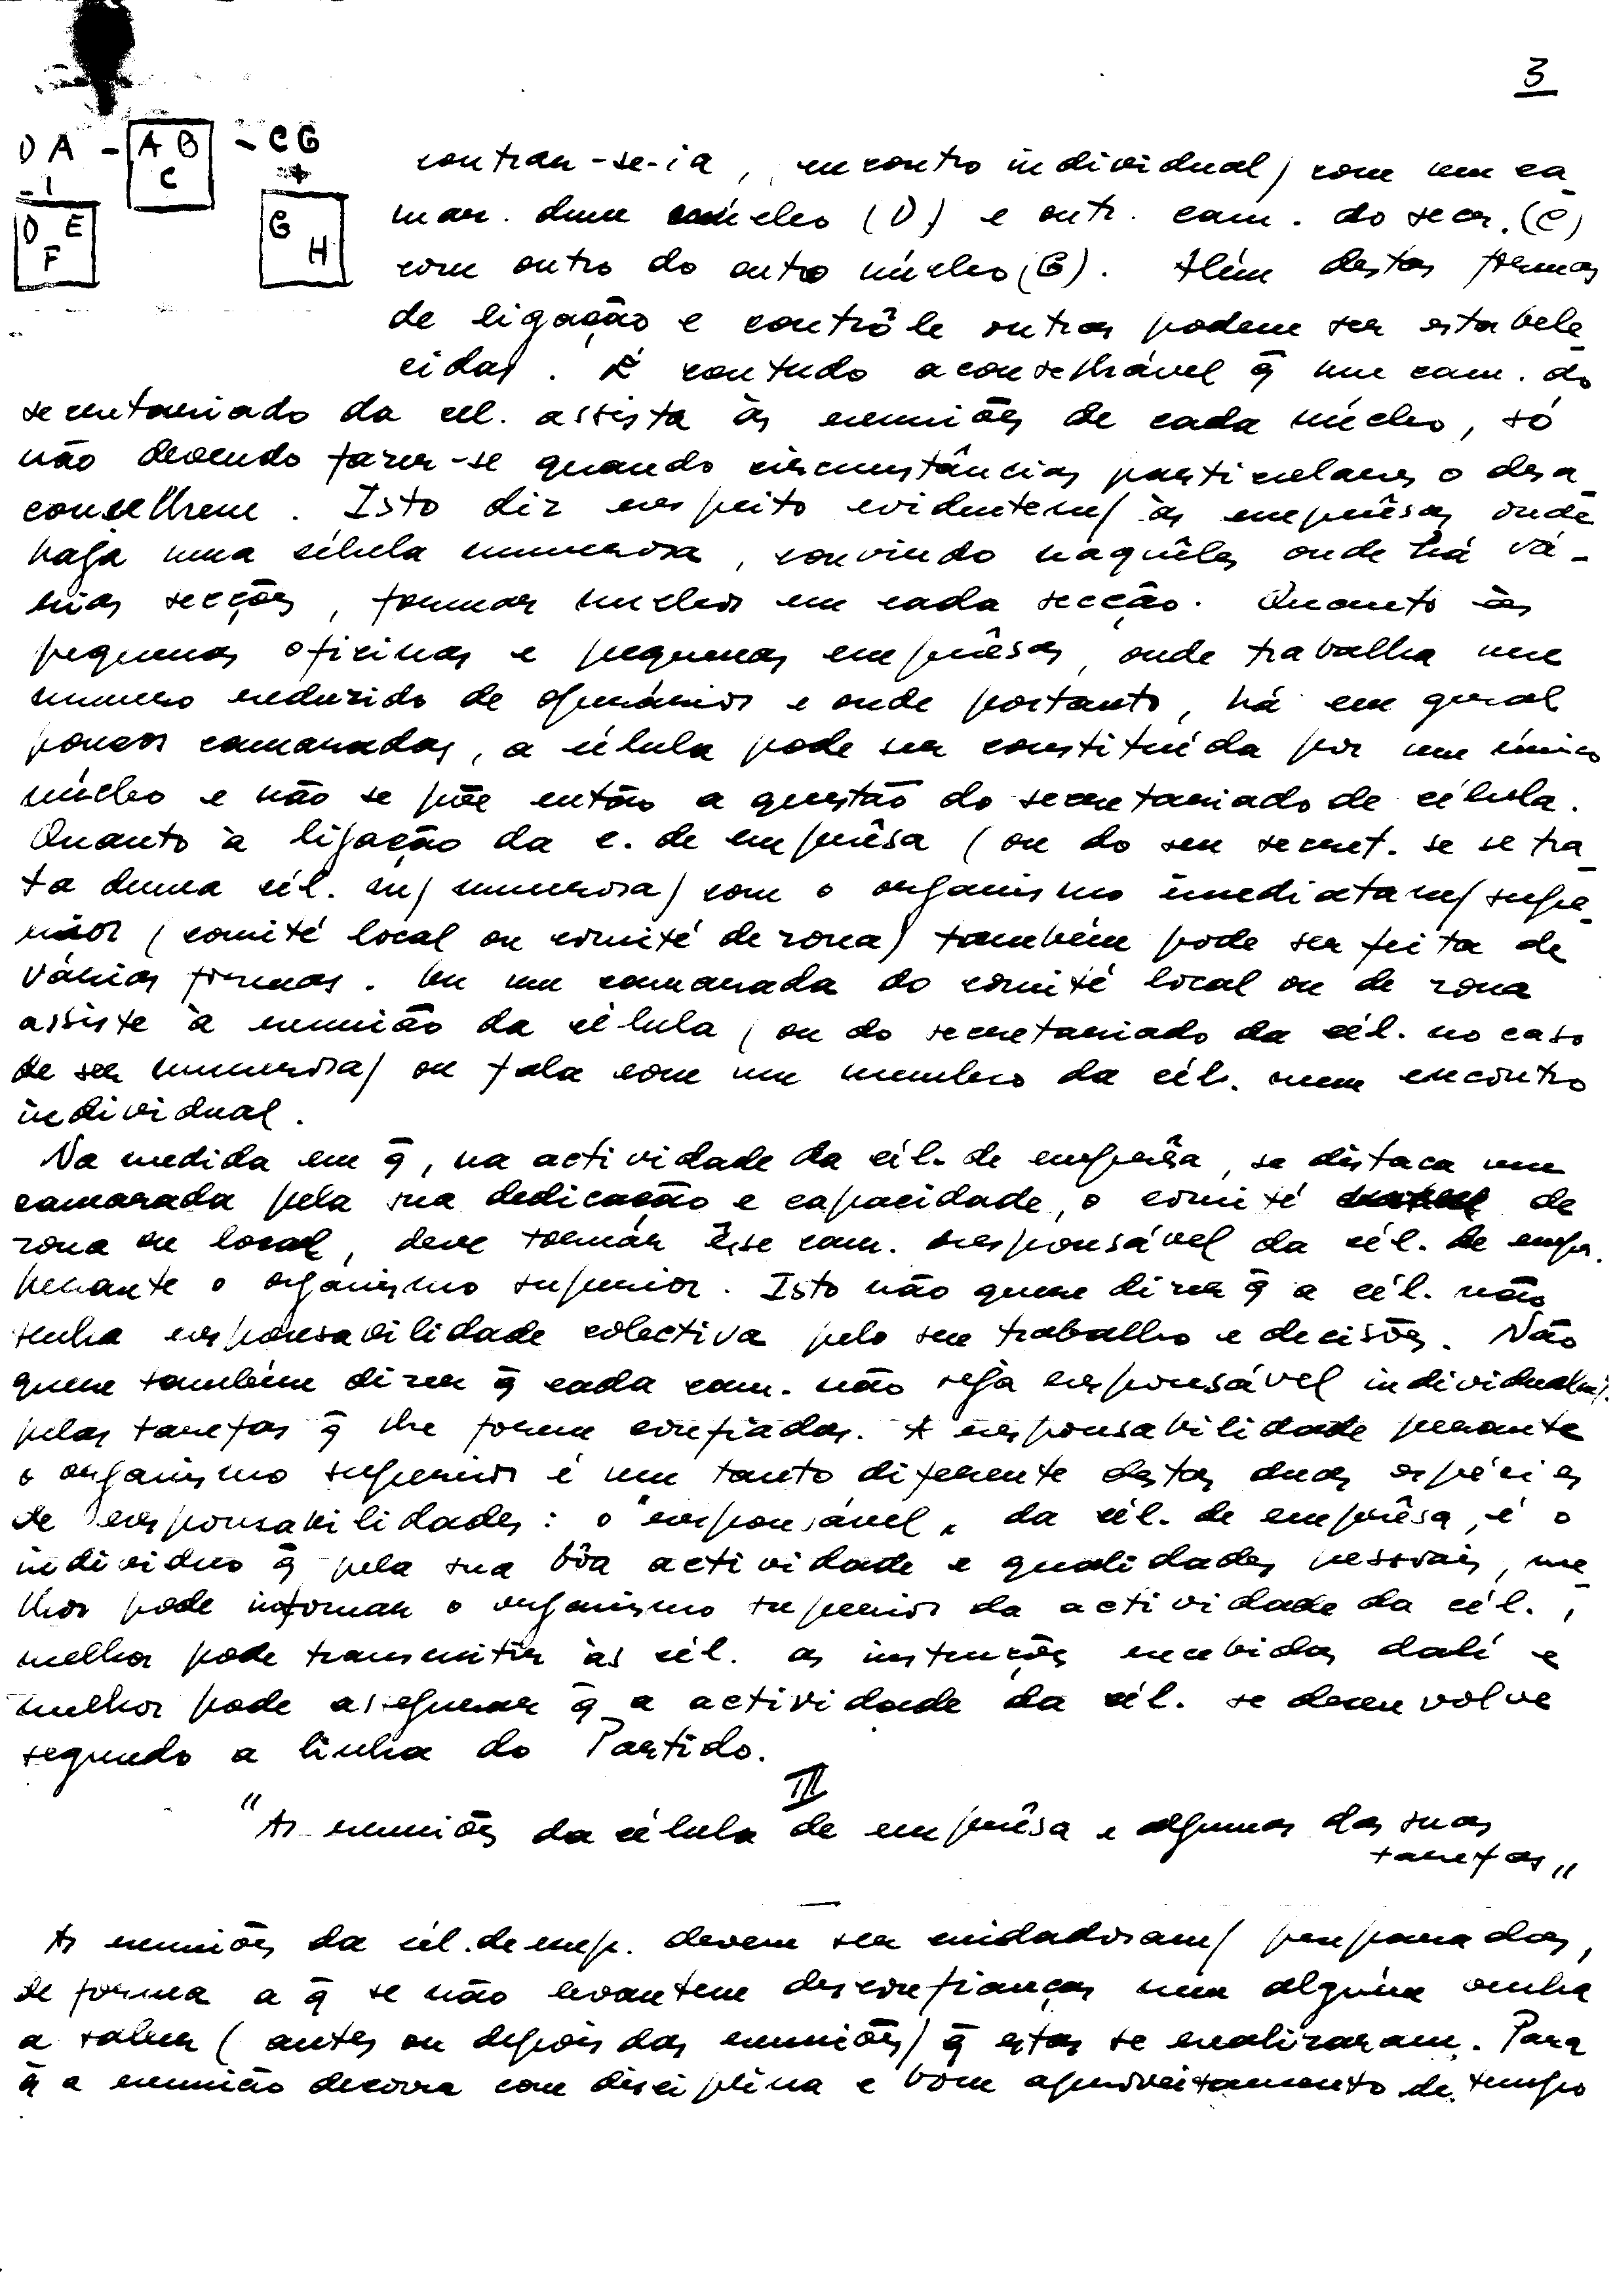 3
D A - A B - C G
C
D E
F
G
H
contrar-se-ia, encontro individual) com um ca
mar. dum núcleo (D) e outr. cam. do secr. (C)
com outro do outro núcleo (G). Além destas formas
de ligação e contrôle outras podem ser estabele
cidas. É contudo aconselhável q̄ um cam. do
secretariado da cel. assista às reuniões de cada núcleo, só
não devendo fazer-se quando circunstâncias particulares o desa
conselhem. Isto diz respeito evidentem/ às emprêsas onde
haja uma célula numerosa, convindo naquêles onde há vá-
rias secções, formar nucleos em cada secção. Quanto às
pequenas oficinas e pequenas emprêsas, onde trabalha um
numero reduzido de operários e onde portanto, há em geral
poucos camaradas, a célula pode ser constituída por um único
núcleo e não se põe então a questão do secretariado de célula.
Quanto à ligação da c. de emprêsa (ou do seu secret. se se tra
ta duma cél. m/ numerosa) com o organismo imediatam/ supe-
rior (comité local ou comité de zona) também pode ser feita de
várias formas. Ou um camarada do comité local ou de zona
assiste à reunião da célula (ou do secretariado da cél. no caso
de ser numerosa) ou fala com um membro da cél. num encontro
individual.
Na medida em q̄, na actividade da cél. de emprêsa, se destaca um
camarada pela sua dedicação e capacidade, o comité de
zona ou local, deve tornár êsse cam. responsável da cél. de empr.
perante o organismo superior. Isto não quere dizer q̄ a cél. não
tenha responsabilidade colectiva pelo seu trabalho e decisões. Não
quere também dizer q̄ cada cam. não seja responsável individualm/.
pelas tarefas q̄ lhe forem confiadas. A responsabilidade perante
o organismo superior é um tanto diferente destas duas espécies
de responsabilidades: o "responsável" da cél. de emprêsa, é o
individuo q̄ pela sua bôa actividade e qualidades pessoais, me
lhor pode informar o organismo superior da actividade da cél.,
melhor pode transmitir às cél. as instruções recebidas dali e
melhor pode assegurar q̄ a actividade da cél. se desenvolve
segundo a linha do Partido.
III
"As reuniões da célula de emprêsa e algumas das suas
tarefas"
As reuniões da cél. de emp. devem ser cuidadosam/ preparadas,
de forma a q̄ se não levantem desconfianças nem alguém venha
a saber (antes ou depois das reuniões) q̄ estas se realizaram. Para
q̄ a reunião decorra com disciplina e bom aproveitamento de tempo